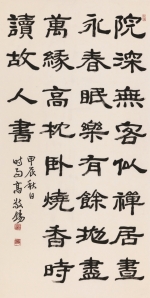 院深無客似禪居畫
永春眠樂有餘地盡
萬緣高枕卧燒香時
讀故人書
甲辰秋日
時雨高敬錫